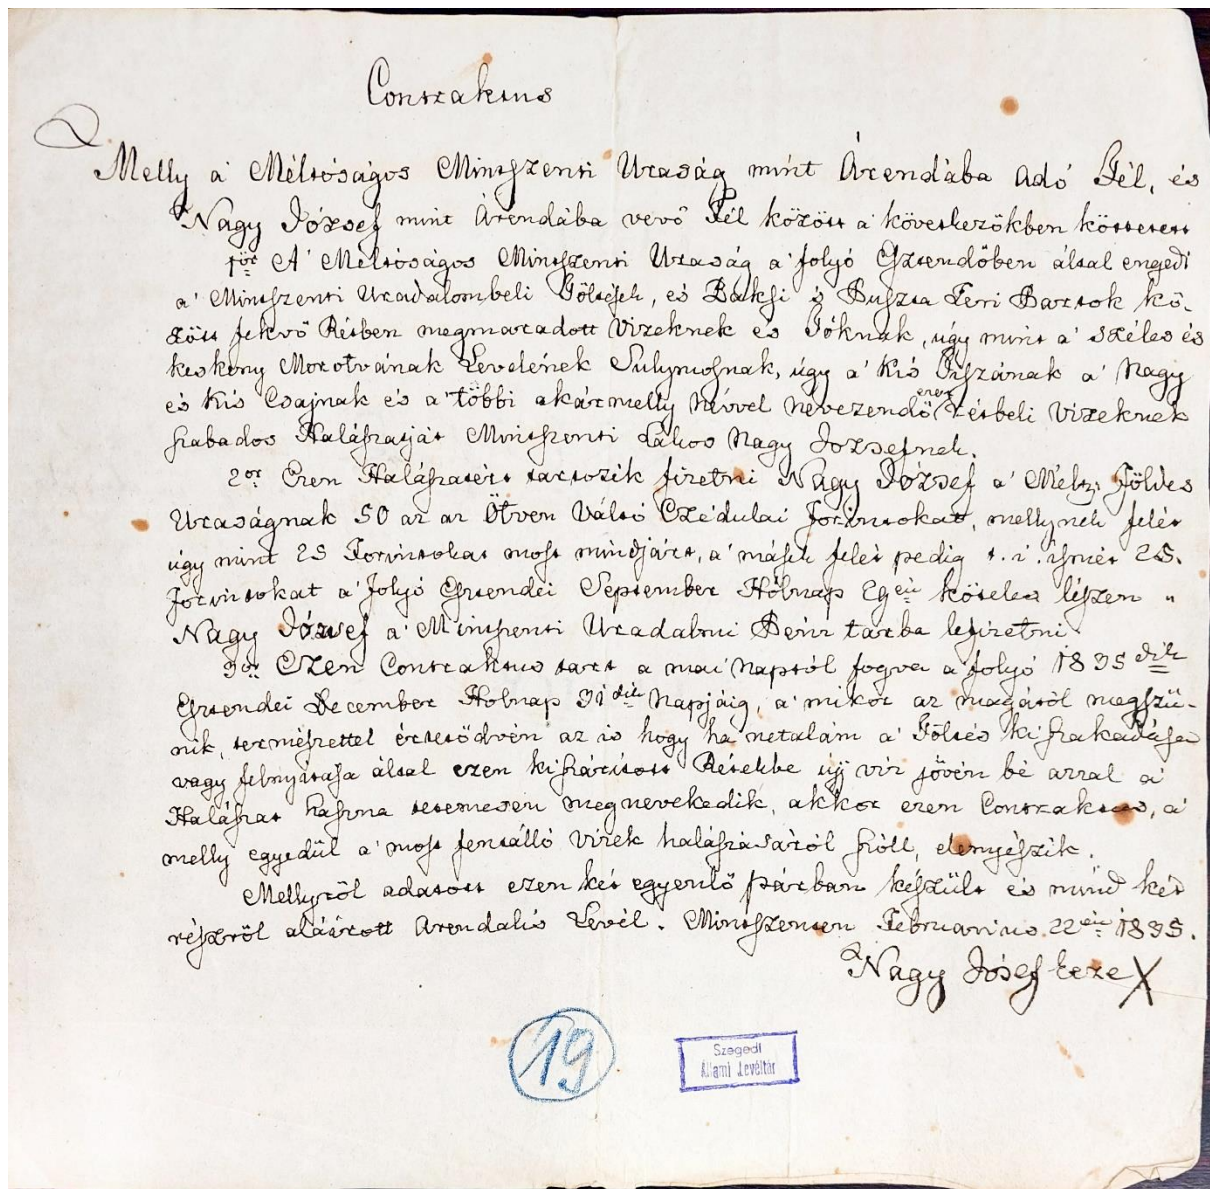 Contraktus
Melly a' Méltóságos Mintszenti Uraság mint Árendába adó Fél, és
Nagy József mint Árendába vevő Fél között a következőkben köttetett
1ör A' Méltóságos Mintszenti Uraság a' folyó Esztendőben által engedi
a' Mintszenti Uradalombeli Töltések, és Baksi s Puszta Teri Partok kö-
zött fekvő Rétben megmaradott Vizeknek és Tóknak, úgy mint a' széles és
keskeny Morotvának Levelének Sulymosnak, úgy a' Kis a' Nagy
és Kis Csajnak és a' többi akármelly névvel nevezendő ezen rétbeli Vizeknek
szabados Halászatját Mintszenti Lakos Nagy Jozsefnek.
2or Ezen Halászatért tartozik fizetni Nagy József a' Mélt: Földes
Uraságnak 50 az az Ötven Váltó Czédulai forintokat, mellynek felét
úgy mint 25 Forintokat most mindjárt, a' másik felét pedig t. i. ismét 25.
forintokat a' folyó Esztendei September Hólnap Egén köteles lészen
Nagy József a' Mintszenti Uradalmi Pénz tárba lefizetni
3or Ezen Contraktus tart a mai Naptól fogva a' folyó 1835dik
Esztendei December Holnap 31dik Napjáig, a' mikor az magától megszü-
nik, természettel értetödvén az is hogy ha netalám a' Töltés kiszakadása
vagy felnyitása által ezen kiszáritott Rétekbe új víz jövén bé azzal a'
Halászat haszna tetemesen megnevekedik, akkor ezen Contraktus, a'
melly egyedül a' most fentálló vizek halászásáról szóll, elenyészik.
Mellyröl adatott ezen két egyenlő párban készült és mind két
részröl aláírott Arendalis Levél. Mintszenten Februarius 22én 1835.
Nagy Jósef keze X
19
Szegedi
Állami Levéltár